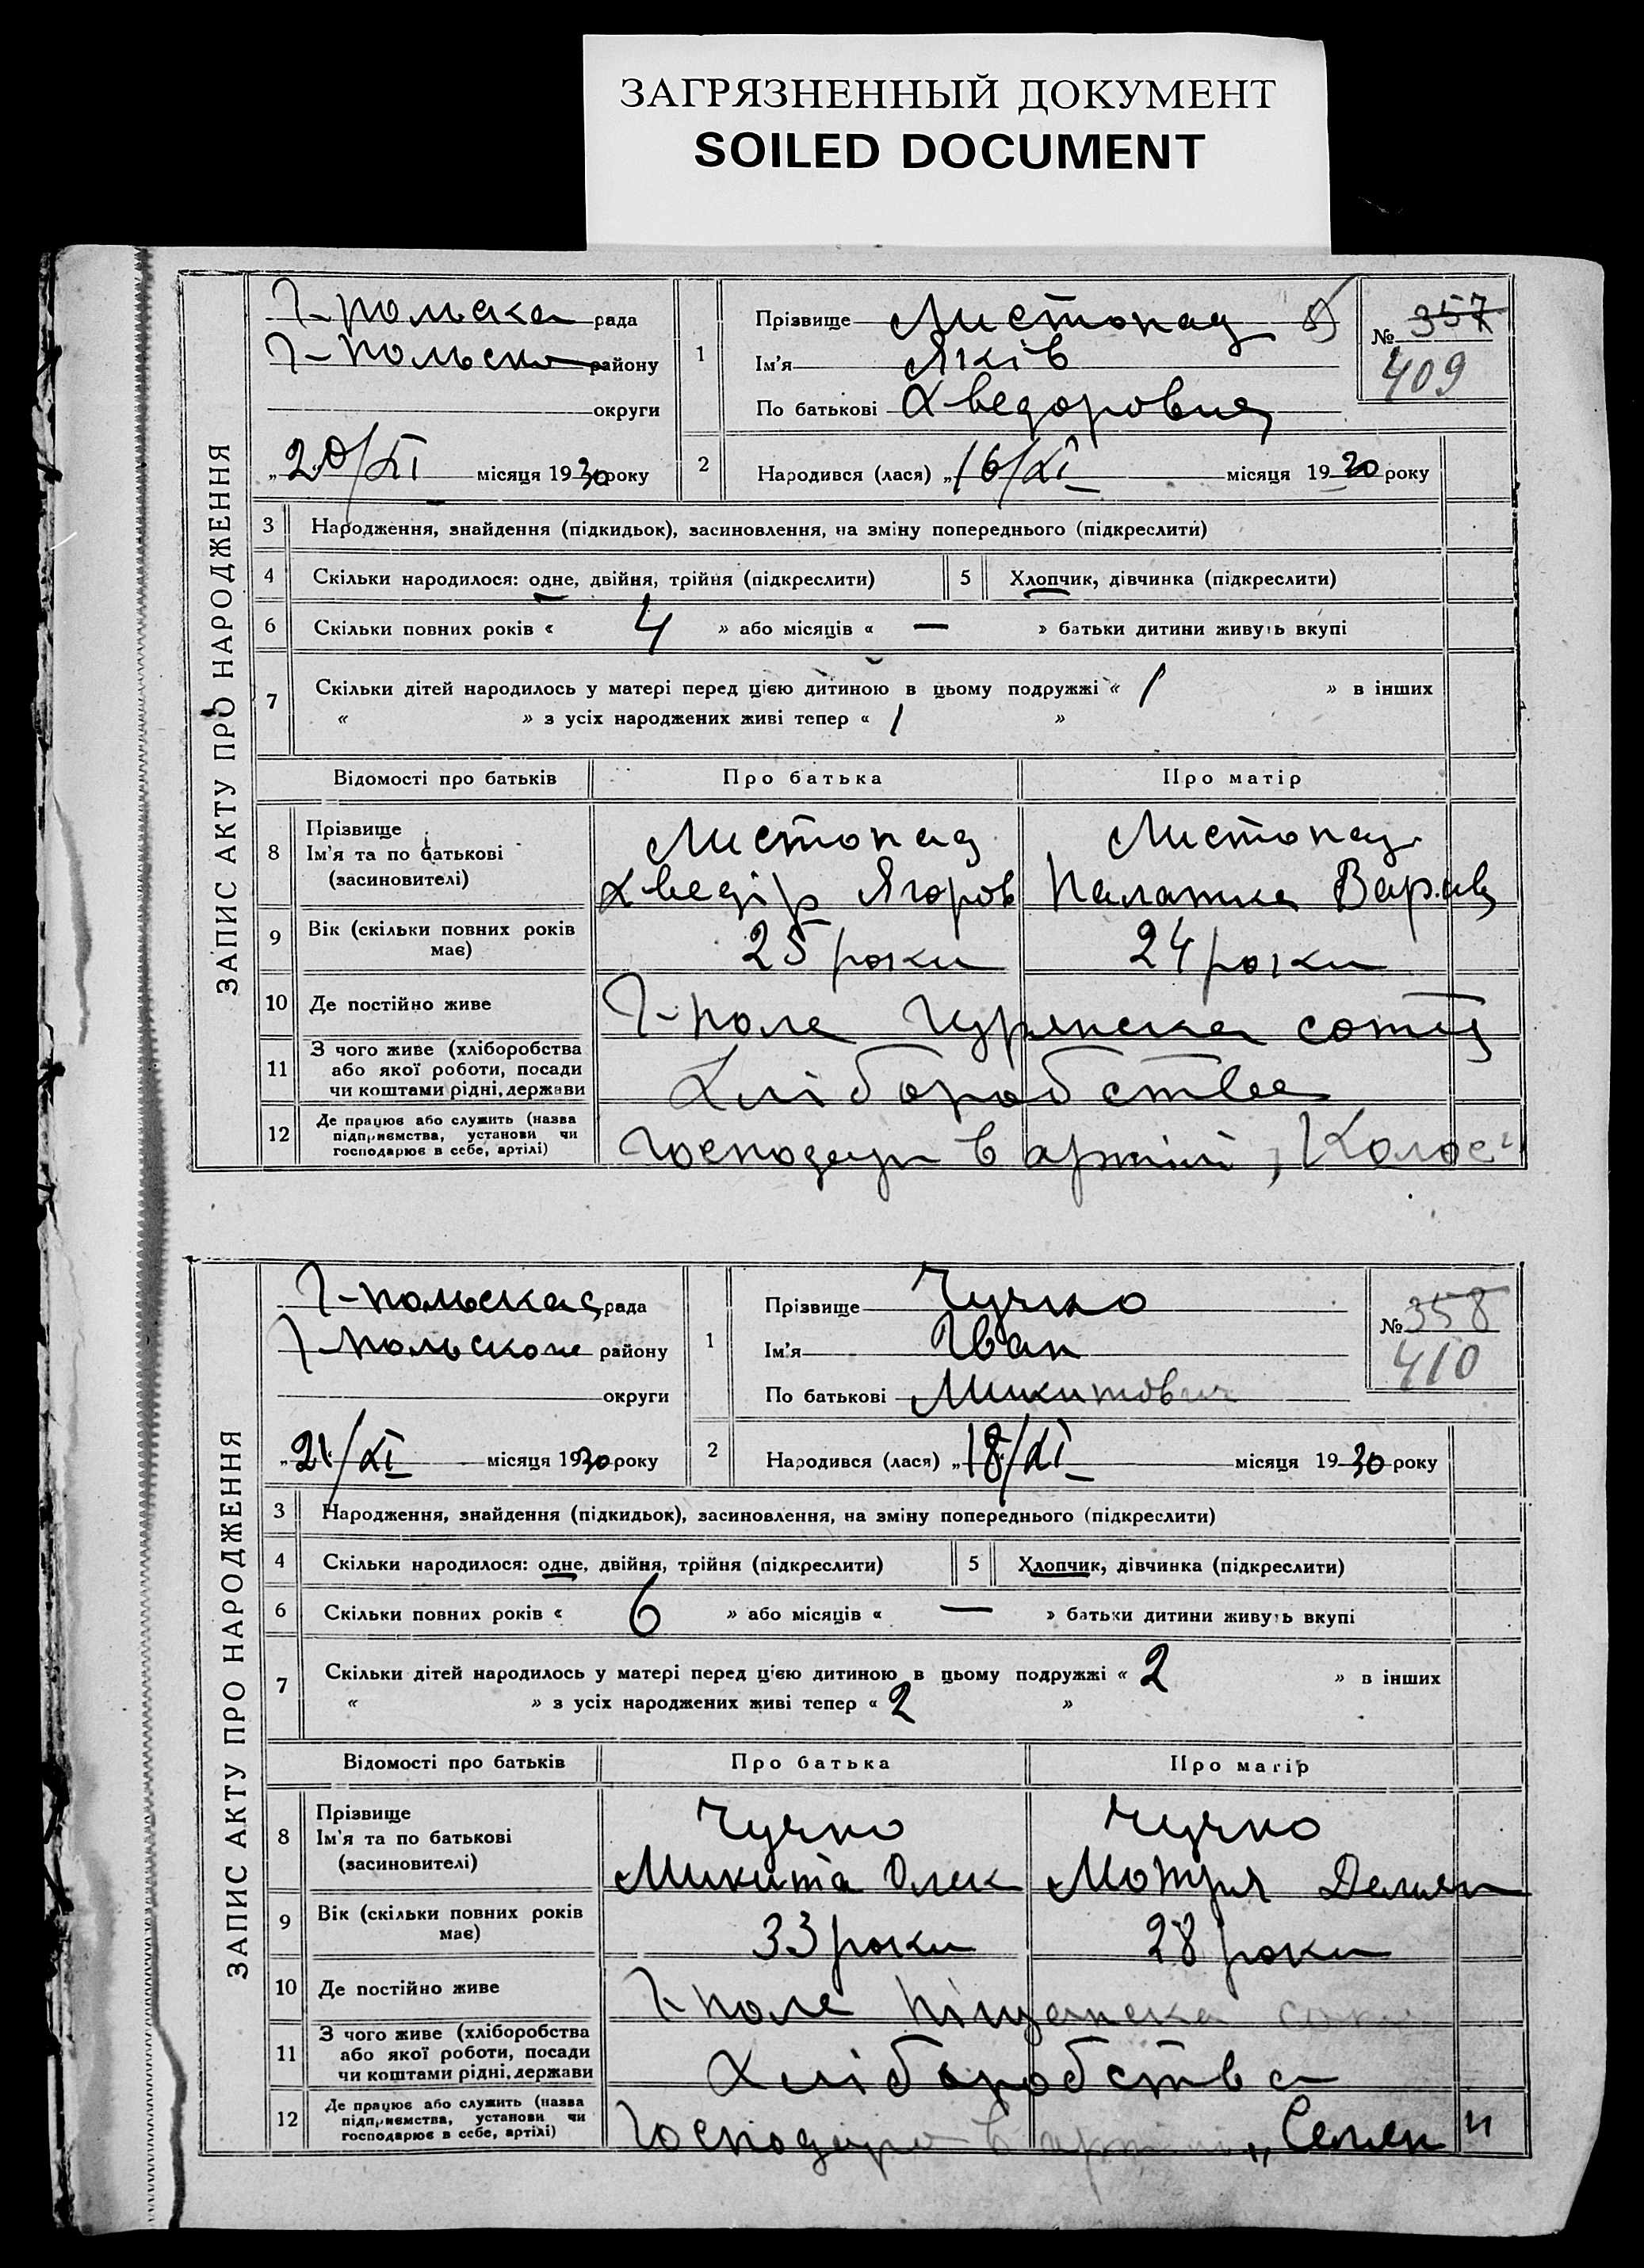 ЗАГРЯЗНЕННЫЙ ДОКУМЕНТ
SOILED DOCUMENT
ЗАПИС АКТУ ПРО НАРОДЖЕННЯ
Г-польска рада
Г-польско району
округи
„20/XI місяця 1930 року
1
Прізвище Листопад
Ім'я Яків
По батькові Хведорович
№ 357
409
2
Народився (лася) „16/XI місяця 1930 року
3 Народження, знайдення (підкидьок), засиновлення, на зміну попереднього (підкреслити)
4 Скільки народилося: одне, двійня, трійня (підкреслити) 5 Хлопчик, дівчинка (підкреслити)
6 Скільки повних років « 4 » або місяців « — » батьки дитини живуть вкупі
7 Скільки дітей народилось у матері перед цією дитиною в цьому подружжі « 1 » в інших
« » з усіх народжених живі тепер « 1 »
Відомості про батьків Про батька Про матір
8 Прізвище Ім'я та по батькові (засиновителі)
Листопад Листопад
Хведір Ягоров Палажка
9 Вік (скільки повних років має) 25 роки 24 роки
10 Де постійно живе Г-поле сотня
11 З чого живе (хліборобства або якої роботи, посади чи коштами рідні, держави Хліборобства
12 Де працює або служить (назва підприємства, установи чи господарює в себе, артілі) Господар в артілі „Колос"
ЗАПИС АКТУ ПРО НАРОДЖЕННЯ
Г-польска рада
Г-польского району
округи
„21/XI місяця 1930 року
1
Прізвище Чучко
Ім'я Іван
По батькові Микитович
№ 358
410
2
Народився (лася) „18/XI місяця 1930 року
3 Народження, знайдення (підкидьок), засиновлення, на зміну попереднього (підкреслити)
4 Скільки народилося: одне, двійня, трійня (підкреслити) 5 Хлопчик, дівчинка (підкреслити)
6 Скільки повних років « 6 » або місяців « — » батьки дитини живуть вкупі
7 Скільки дітей народилось у матері перед цією дитиною в цьому подружжі « 2 » в інших
« » з усіх народжених живі тепер « 2 »
Відомості про батьків Про батька Про матір
8 Прізвище Ім'я та по батькові (засиновителі)
Чучко Чучко
Микита Олек Мотря Демян
9 Вік (скільки повних років має) 33 роки 28 роки
10 Де постійно живе Г-поле Піщанска
11 З чого живе (хліборобства або якої роботи, посади чи коштами рідні, держави Хліборобства
12 Де працює або служить (назва підприємства, установи чи господарює в себе, артілі) Господарю в артілі „Селян"